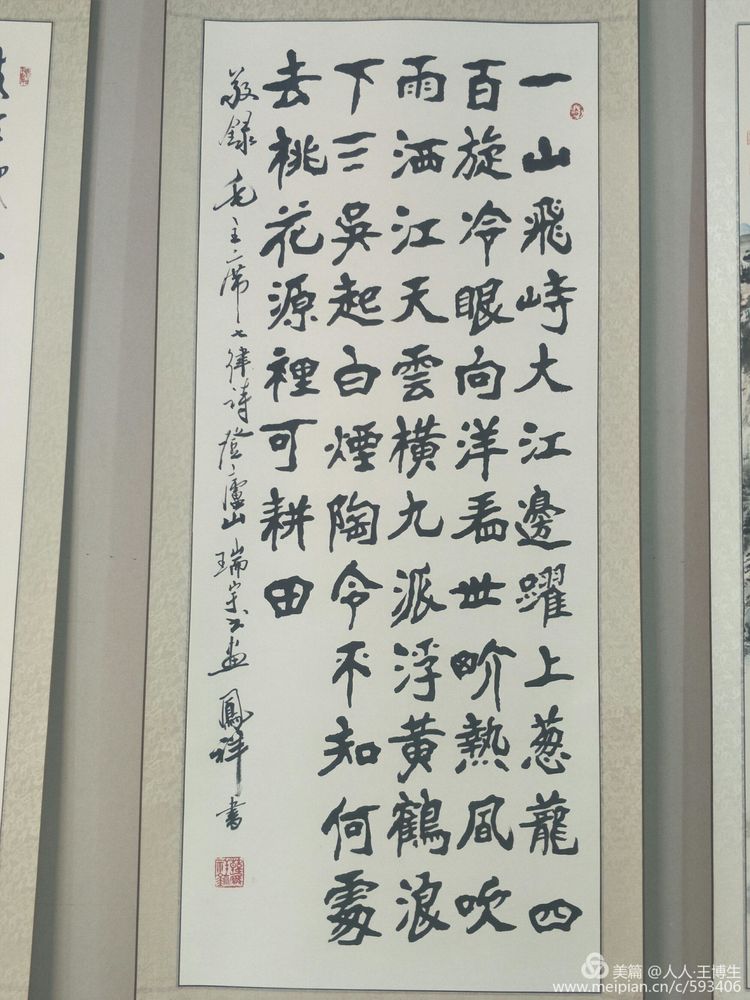 一山飛峙大江邊躍上葱蘢四
百旋冷眼向洋看世畍熱風吹
雨洒江天雲橫九派浮黃鶴浪
下三吳起白煙陶令不知何處
去桃花源裡可耕田
敬録毛主席七律詩登廬山 瑞 鳳祥書
美篇 @人人·王博生
www.meipian.cn/c/593406